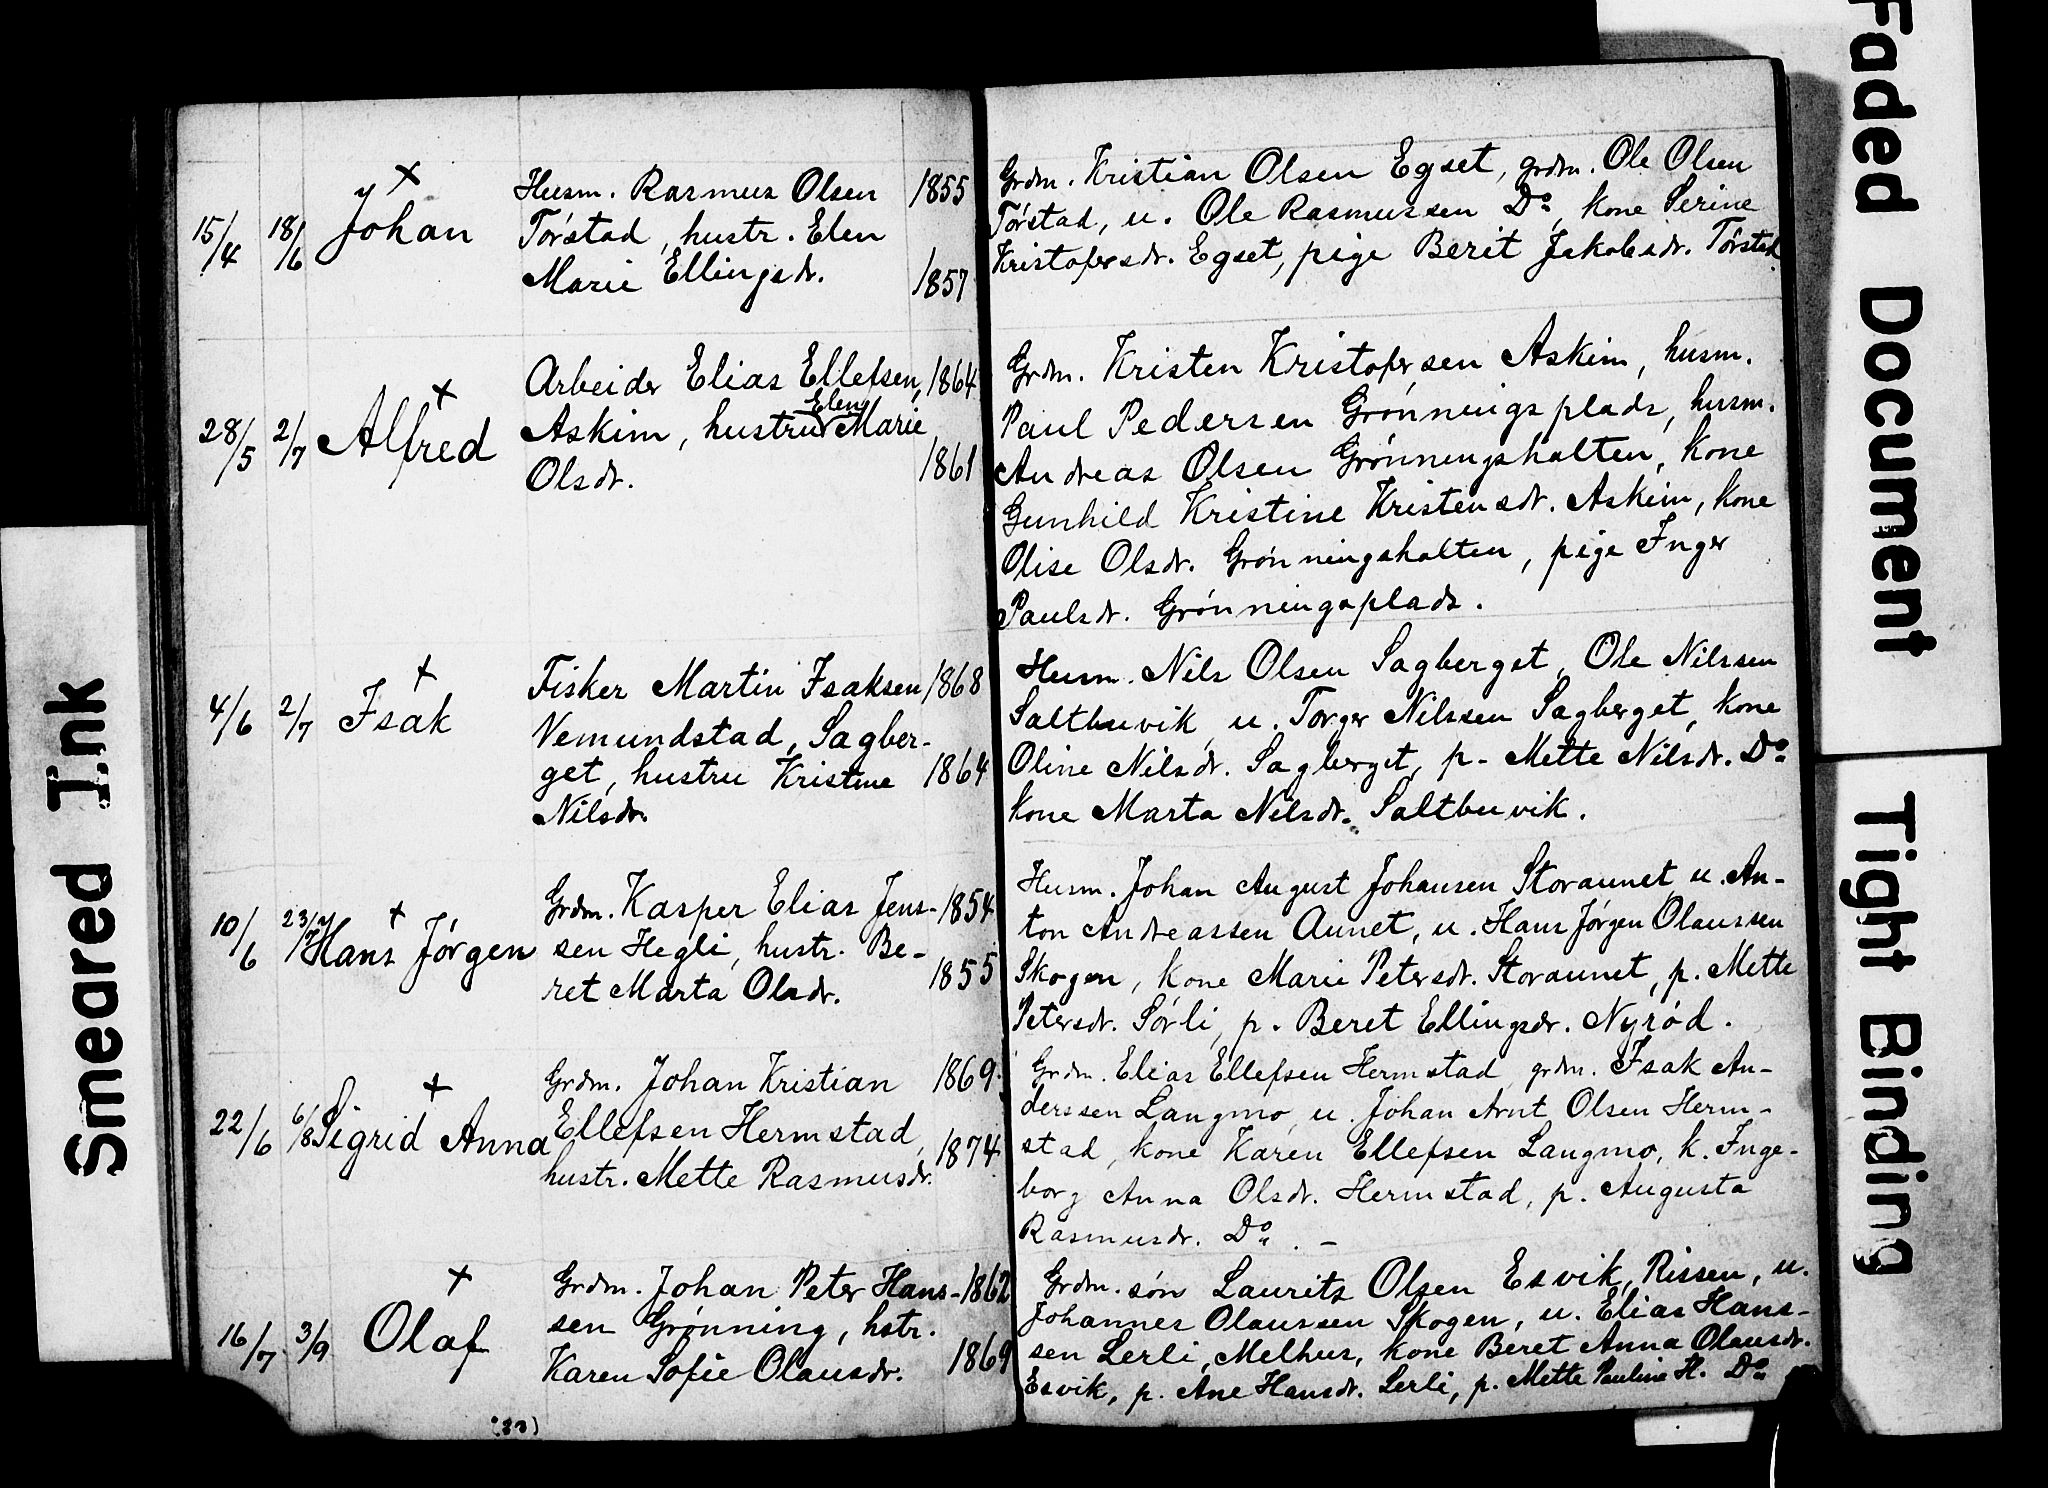 Faded Document
Tight Binding
Smeared Ink
15/4 18/6 Johan
Husm. Rasmus Olsen 1855
Tørstad, hustr. Elen
Marie Ellingsdr. 1857
Grdm. Kristian Olsen Egset, grdm. Ole Olsen
Tørstad, u. Ole Rasmussen Do, kone Serine
Kristofersdr. Egset, pige Berit Jakobsdr. Tørstad
28/5 2/7 Alfred
Arbeider Elias Ellefsen, 1864
Askim, hustru Elen Marie
Olsdr. 1861
Grdm. Kristen Kristofersen Askim, husm.
Paul Pedersen Grønningsplads, husm.
Andreas Olsen Grønningshalten, kone
Gunhild Kristine Kristensdr. Askim, kone
Olise Olsdr. Grønningshalten, pige Inger
Paulsdr. Grønningsplads.
4/6 2/7 Isak
Fisker Martin Isaksen 1868
Vemundstad, Sagber-
get, hustru Kristine 1864
Nilsdr.
Husm. Nils Olsen Sagberget, Ole Nilssen
Saltbuvik, u. Torger Nilssen Sagberget, kone
Oline Nilsdr. Sagberget, p. Mette Nilsdr. Do
kone Marta Nilsdr. Saltbuvik.
10/6 23/7 Hans Jørgen
Grdm. Kasper Elias Jens- 1854
sen Hegli, hustr. Be-
ret Marta Olsdr. 1855
Husm. Johan August Johansen Storaunet u. An-
ton Andreassen Aunet, u. Hans Jørgen Olaussen
Skogen, kone Marie Petersdr. Storaunet, p. Mette
Petersdr. Sørli, p. Beret Ellingsdr. Nyrød.
22/6 6/8 Sigrid Anna
Grdm. Johan Kristian 1869
Ellefsen Hermstad,
hustr. Mette Rasmusdr. 1874
Grdm. Elias Ellefsen Hermstad, grdm. Isak An-
derssen Langmo, u. Johan Arnt Olsen Herm-
stad, kone Karen Ellefsen Langmo, k. Inge-
borg Anna Olsdr. Hermstad, p. Augusta
Rasmusdr. Do. -
16/7 3/9 Olaf
Grdm. Johan Peter Hans- 1862
sen Grønning, hstr.
Karen Sofie Olausdr. 1869
Grdm. søn Laurits Olsen Esvik, Rissen, u.
Johannes Olaussen Skogen, u. Elias Hans-
sen Lerli, Melhus, kone Beret Anna Olausdr.
Esvik, p. Ane Hansdr. Lerli, p. Mette Pauline H. Do